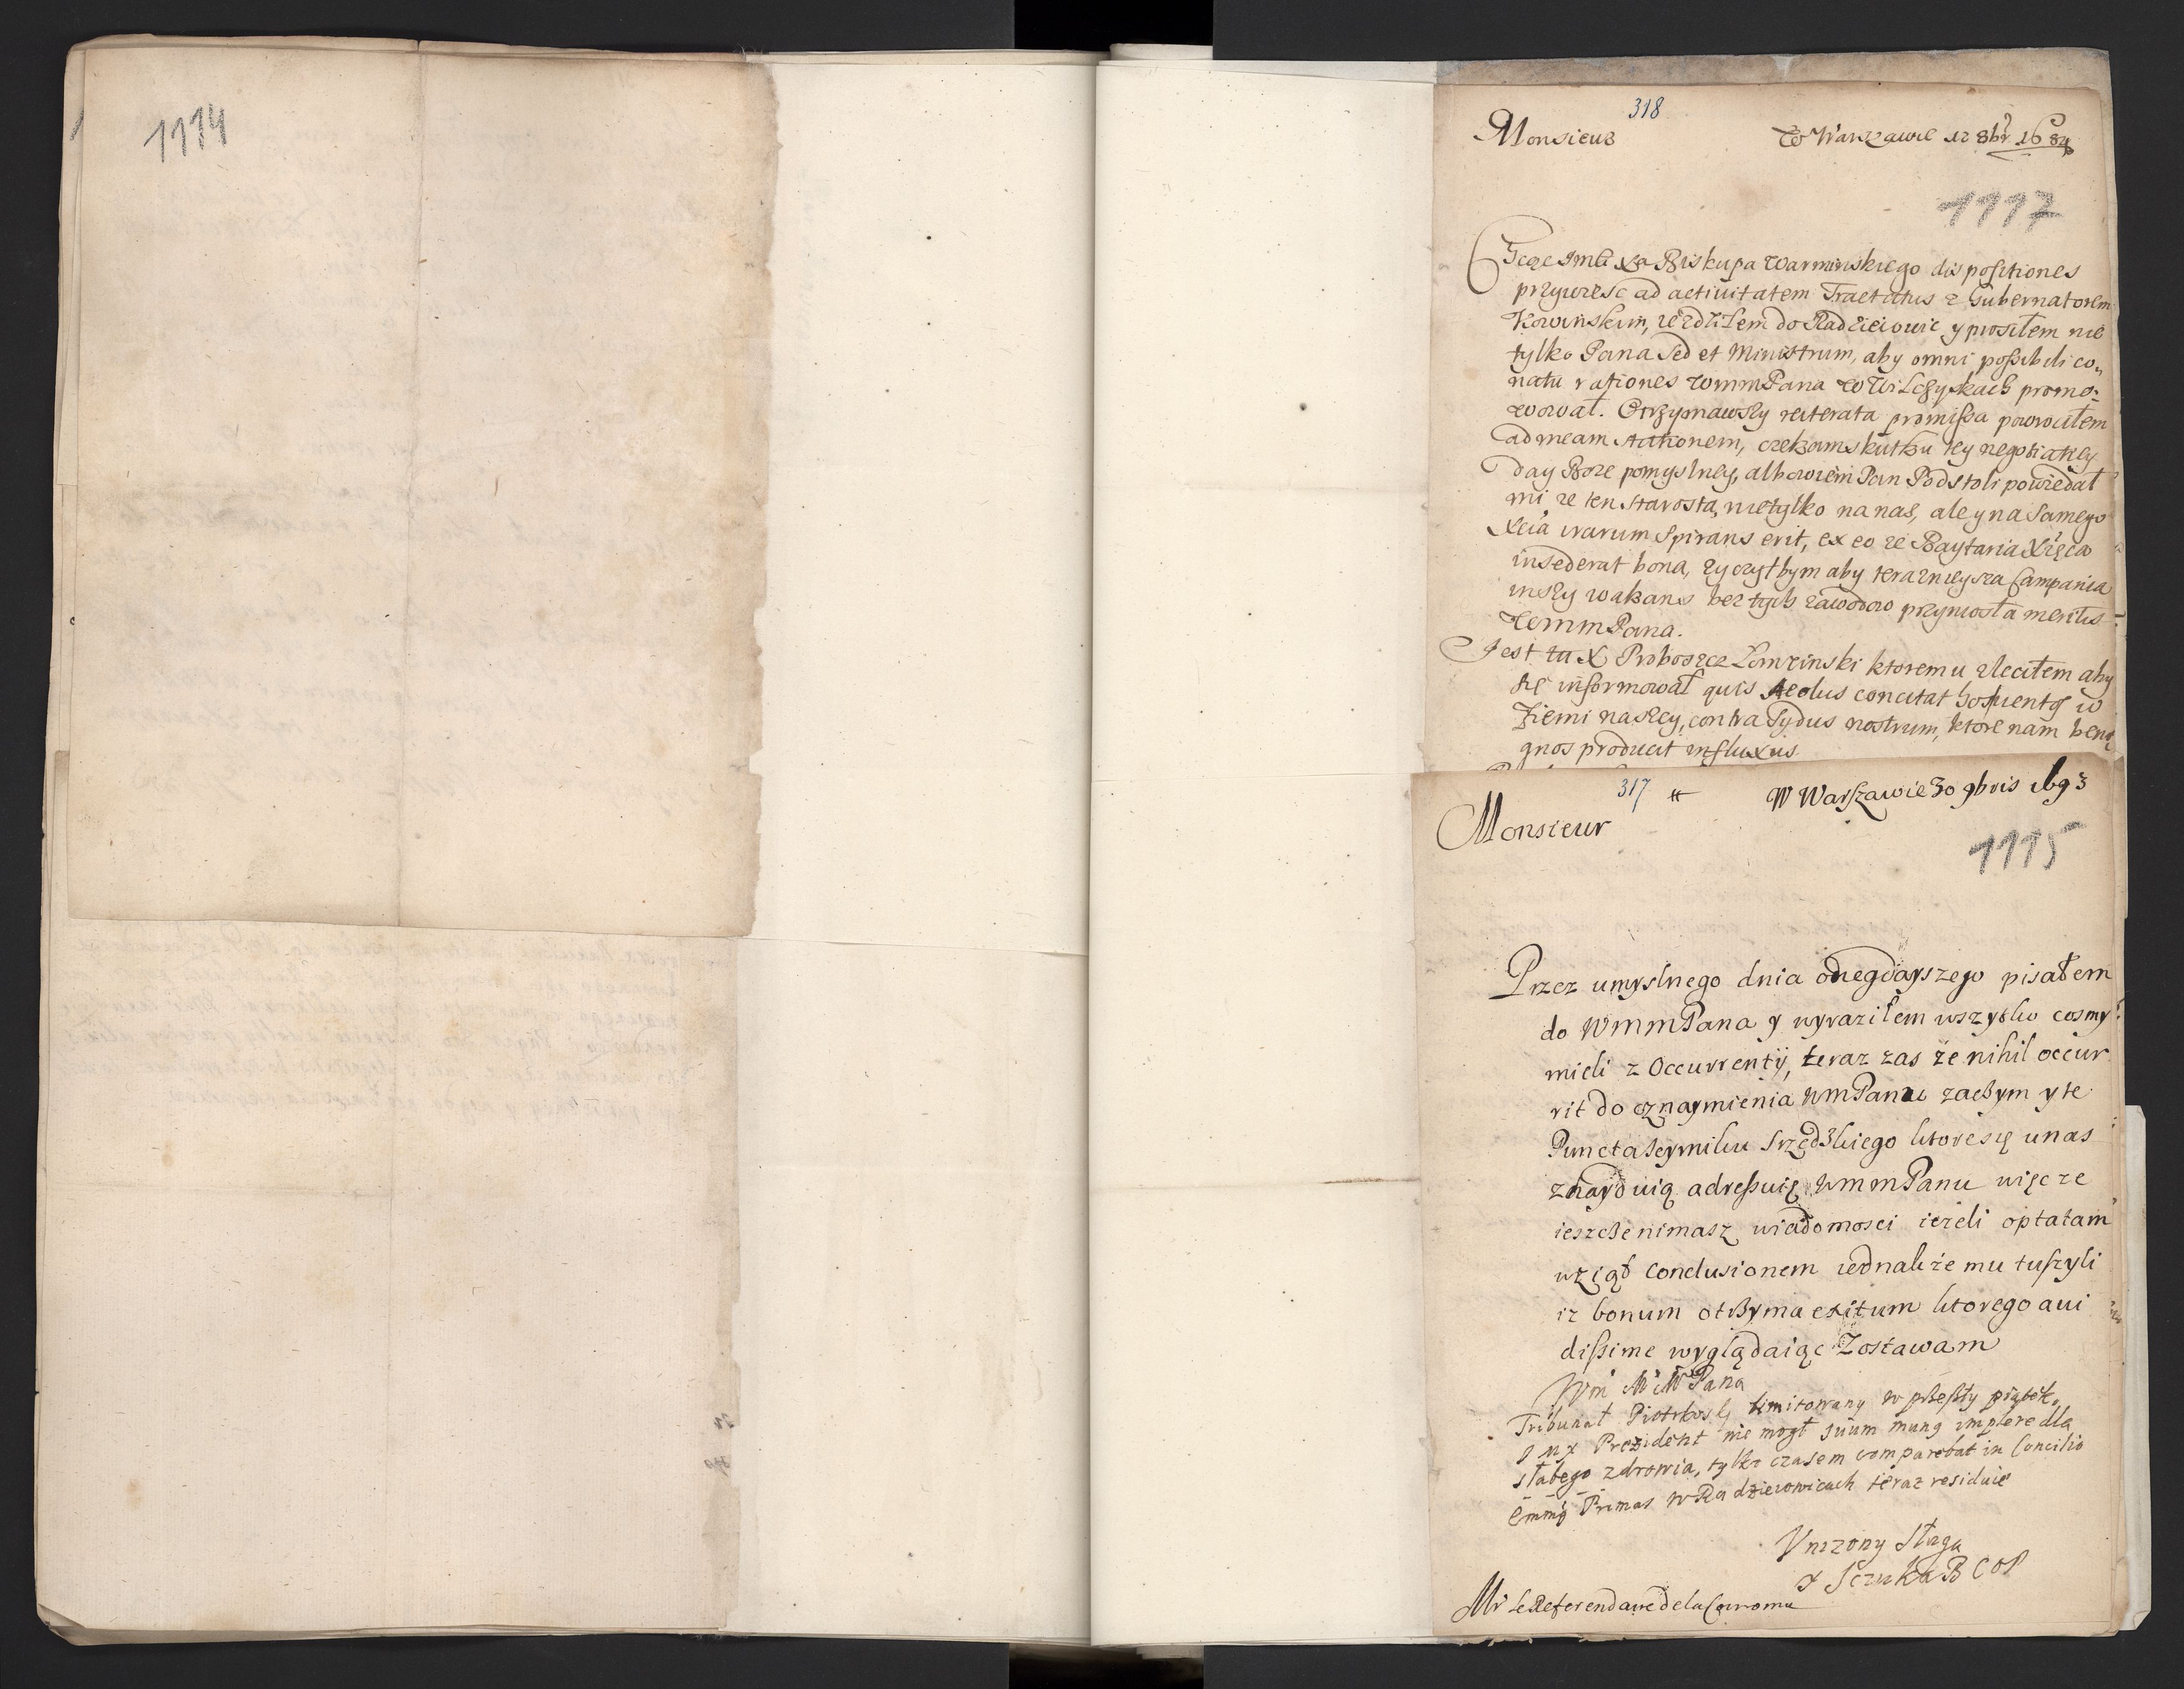 1114
318
Monsieur
W Warszawie 12 8br 1684
1117
Jmći Xa Biskupa Warminskiego dispositiones
przywiesc ad activitatem Tractatus z Gubernatorem
Kowinskim, ieździłem do Radzieiowic y prosiłem nie
tylko Pana sed et Ministrum, aby omni possibili co„
natu rationes WmmPana w Wilczyskach promo„
wował. Otrzymawszy reiterata promissa powrociłem
ad meam stationem, czekam skutku tey negotiatiey
day Boze pomyslney, albowiem Pan Podstoli powiedał
mi ze ten starosta, nietylko na nas, ale y na samego
Xcia irarum spirans erit, ex eo ze Xięca
insederat bona, zyczyłbym aby teraznieysza Campania
inszy wakans bez tych zawodow przyniosła meritis
WmmPana.
Jest tu X Proboszcz Lomzinski ktoremu zleciłem aby
się informował quis Aeolus concitat hos ventos w
Ziemi naszey, contra sydus nostrum, ktore nam beni
gnos producit influxus
317
W Warszawie 30 9bris 1693
Monsieur
1115
Przez umyslnego dnia onegdayszego pisałem
do WmmPana y wyraziłem wszytko cosmy
mieli z Occurrentij, teraz zas że nihil occur
rit do oznaymienia WmPanu zaczym y te
Puncta Seymiku Srzędzkiego ktore się u nas
znayduią adressuię WmmPanu więc ze
ieszcze nimasz wiadomosci ieżeli optatam
wziął conclusionem iednakże mu tuszyli
iz bonum otrzyma exitum ktorego avi
dissime wyglądaiąc Zostawam
Wm M M Pana
Tribunał Piotrkoski limitowany w przeszły piątek,
Prezident nie mogł suum munq implere dla
słabego zdrowia, tylko czasem comparebat in Concilio
Emmq Primas w Radzieiowicach teraz residuie
Vnizony Sługa
X Sczuka B C O P
Mr Le Referendaire de la Couronne